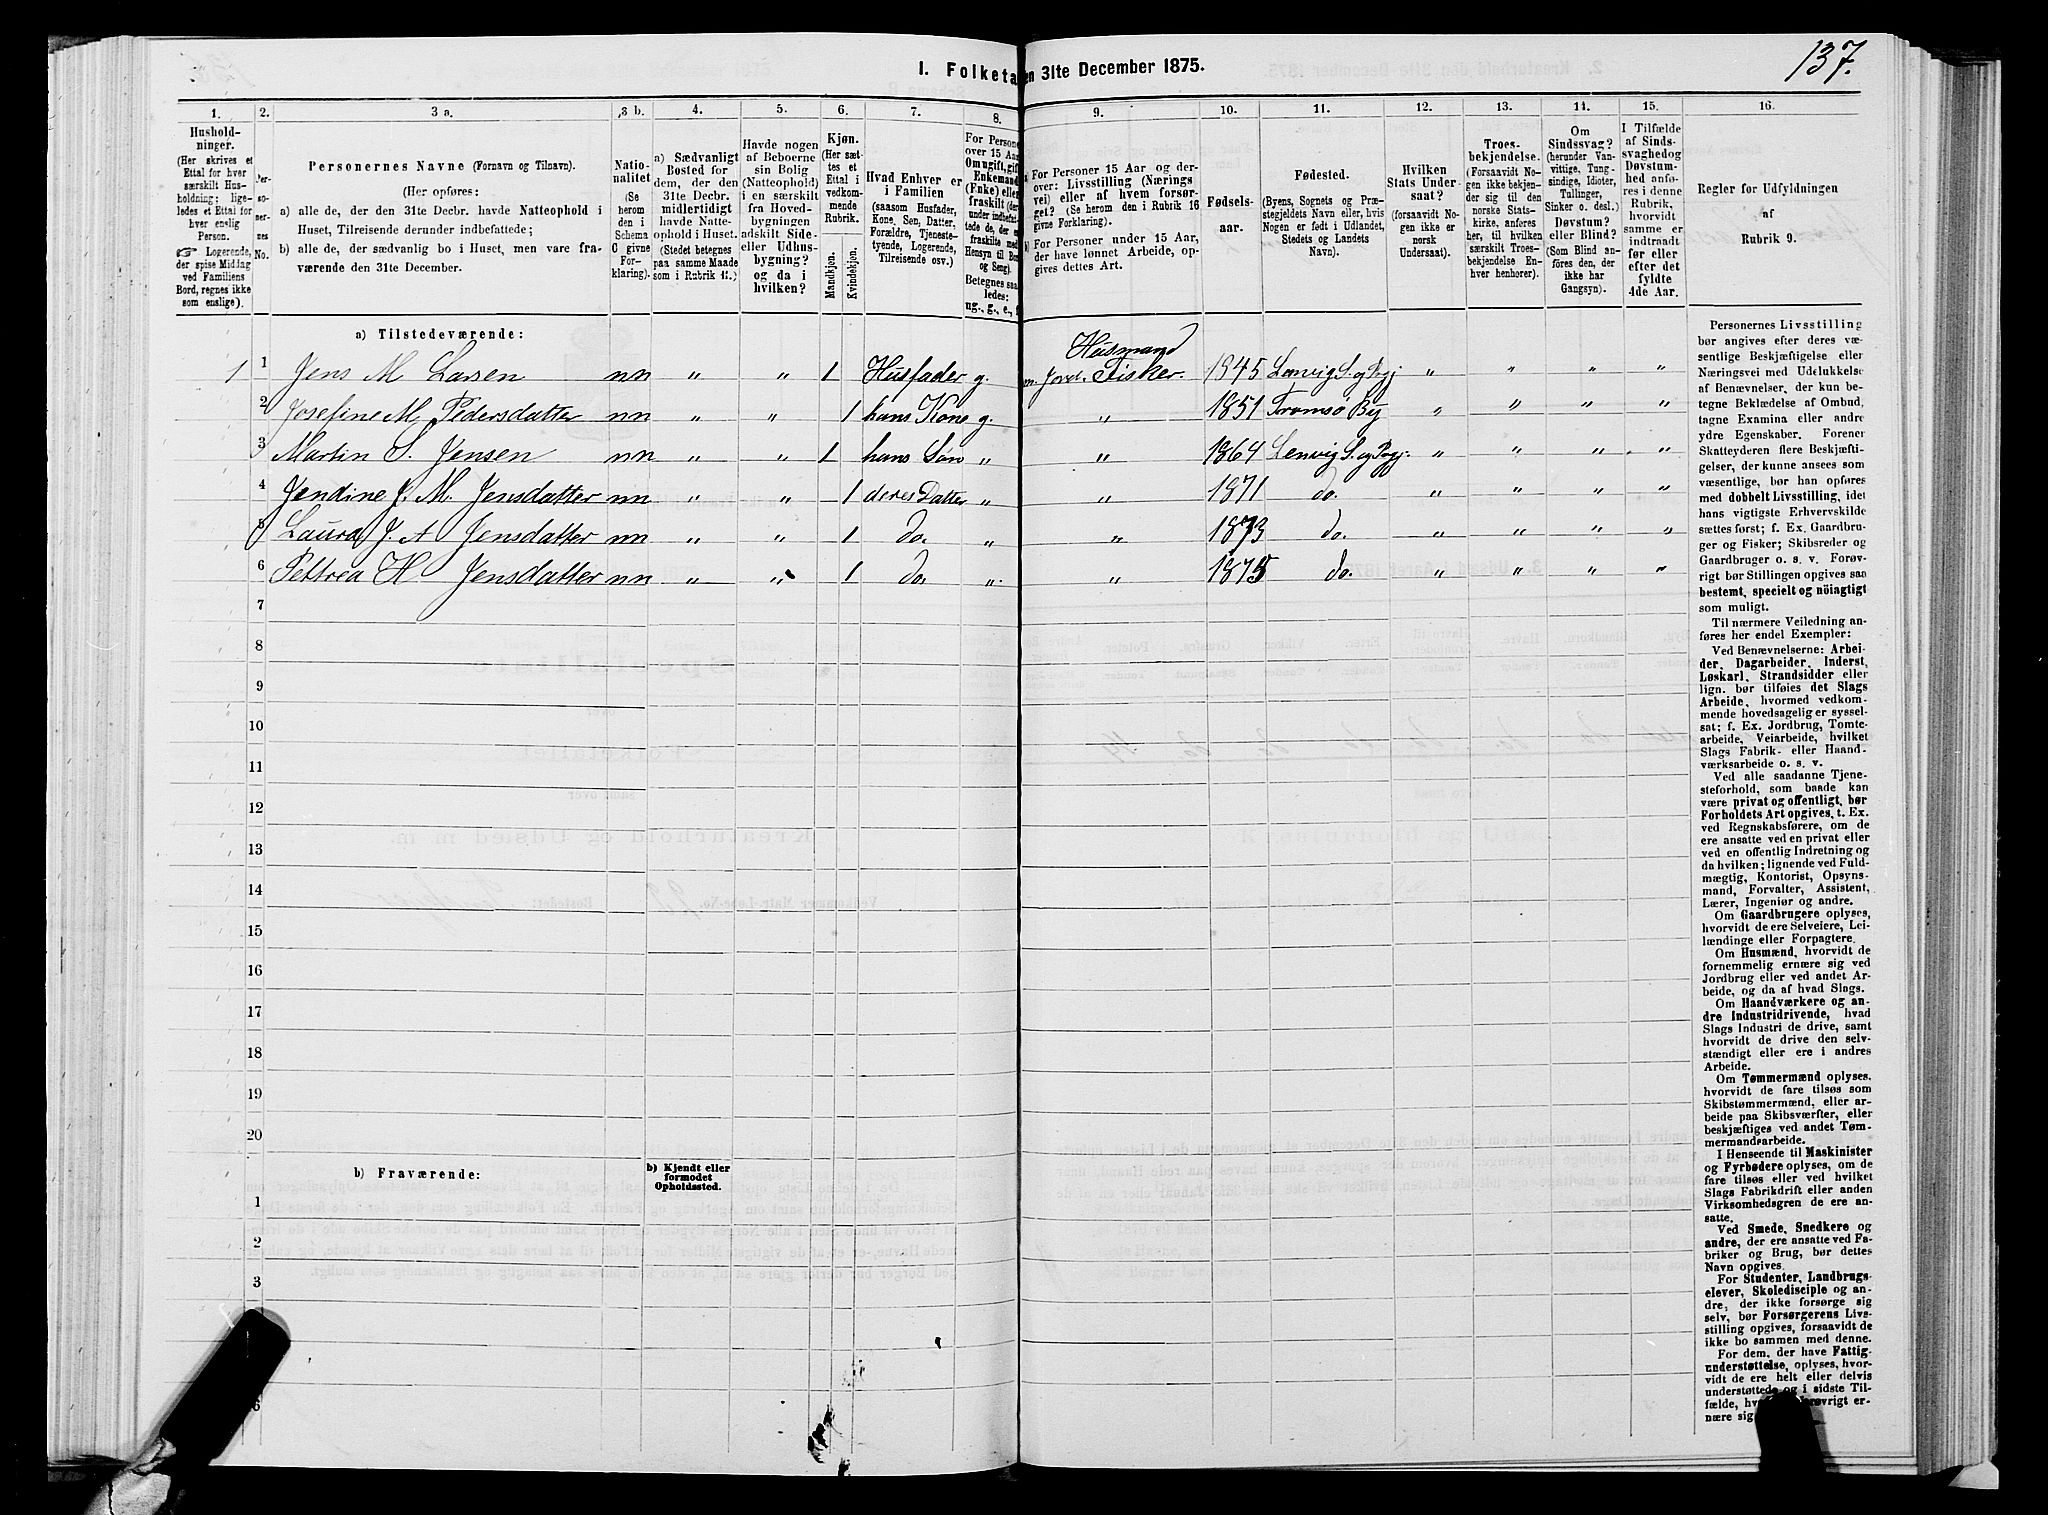 137.
I. Folketa en 31te December 1875.
1. 2. 3 a. 3 b. 4. 5. 6. 7. 8. 9. 10. 11. 12. 13. 14. 15. 16.
Hushold-
ninger.
(Her skrives et
Ettal for hver
særskilt Hus-
holdning; lige-
ledes et Ettal for
hver enslig
Person.
☞ Logerende,
der spise Middag
ved Familiens
Bord, regnes ikke
som enslige).
Per-
so-
ner-
nes
No.
Personernes Navne (Fornavn og Tilnavn).
(Her opføres:
a) alle de, der den 31te Decbr. havde Natteophold i
Huset, Tilreisende derunder indbefattede;
b) alle de, der sædvanlig bo i Huset, men vare fra-
værende den 31te December.
Natio-
nalitet
(Se
herom
den i
Schema
C givne
For-
klaring).
a) Sædvanligt
Bosted for
dem, der den
31te Decbr.
midlertidigt
havde Natte-
ophold i Huset.
(Stedet betegnes
paa samme Maade
som i Rubrik 11.)
Havde nogen
af Beboerne
sin Bolig
(Natteophold)
i en særskilt
fra Hoved-
bygningen
adskilt Side-
eller Udhus-
bygning?
og da i
hvilken?
Kjøn.
(Her sæt-
tes et
Ettal i
vedkom-
mende
Rubrik.
Mandkjøn.
Kvindekjøn.
Hvad Enhver er
i Familien
(saasom Husfader,
Kone, Søn, Datter,
Forældre, Tjeneste-
tyende, Logerende,
Tilreisende osv.)
For Persone
over 15 Aar
Om ugift, gift
Enkemand
(Enke) eller
fraskilt (der-
under indbefat-
tede de, der er
fraskilte med
Hensyn til Bo
og Seng).
Betegnes saa-
ledes:
ug., g., e., f.
a) For Personer 15 Aar og der-
over: Livsstilling (Nærings-
vei) eller af hvem forsør-
get? (Se herom den i Rubrik 16
givne Forklaring.)
b) For Personer under 15 Aar,
der have lønnet Arbeide, op-
gives dettes Art.
Fødsels-
aar.
Fødested.
(Byens, Sognets og Præ-
stegjeldets Navn eller, hvis
Nogen er født i Udlandet,
Stedets og Landets
Navn).
Hvilken
Stats Under-
saat?
(forsaavidt No-
gen ikke er
norsk
Undersaat).
Troes-
bekjendelse.
(Forsaavidt No-
gen ikke bekjen-
der sig til den
norske Stats-
kirke, anføres
her, til hvilken
særskilt Troes-
bekjendelse En-
hver henhører).
Om
Sindssvag?
(herunder Van-
vittige, Tung-
sindige, Idioter,
Tullinger,
Sinker o. desl.)
Døvstum?
eller Blind?
(Som Blind an-
føres den, der
ikke har
Gangsyn).
I Tilfælde
af Sinds-
svaghed og
Døvstum-
hed anfø-
res i denne
Rubrik,
hvorvidt
samme er
indtraadt
før eller
efter det
fyldte
4de Aar.
Regler for Udfyldningen
af
Rubrik 9.
a) Tilstedeværende:
1 1 Jens M Larsen nn „ „ 1 Husfader g. Husmand m. Jord. Fisker. 1845 Lenvig S. og Pgj „ „ „ „
2 Josefine M. Pedersdatter nn „ „ 1 hans Kone g. „ 1851 Tromsø By „ „ „ „
3 Martin S. Jensen nn „ „ 1 hans Søn „ „ 1864 Lenvig S. og Pgj. „ „ „ „
4 Jendine J. M. Jensdatter nn „ „ 1 deres Datter „ „ 1871 do. „ „ „ „
5 Laura J. A Jensdatter nn „ „ 1 do. „ „ 1873 do. „ „ „ „
6 Pettrea H Jensdatter nn „ „ 1 do. „ „ 1875 do. „ „ „ „
7
8
9
10
11
12
13
14
15
16
17
18
19
20
b) Fraværende:
b) Kjendt eller
formodet
Opholdssted.
1
2
3
6
Personernes Livsstilling
bør angives efter deres væ-
sentlige Beskjæftigelse eller
Næringsvei med Udelukkelse
af Benævnelser, der kun be-
tegne Beklædelse af Ombud,
tagne Examina eller andre
ydre Egenskaber. Forener
Skatteyderen flere Beskjæfti-
gelser, der kunne ansees som
væsentlige, bør han opføres
med dobbelt Livsstilling, idet
hans vigtigste Erhvervskilde
sættes først; f. Ex. Gaardbru-
ger og Fisker; Skibsreder og
Gaardbruger o. s. v. Forøv-
rigt bør Stillingen opgives saa
bestemt, specielt og nöiagtigt
som muligt.
Til nærmere Veiledning an-
føres her endel Exempler:
Ved Benævnelserne: Arbei-
der, Dagarbeider, Inderst,
Løskarl, Strandsidder eller
lign. bør tilføies det Slags
Arbeide, hvormed vedkom-
mende hovedsagelig er syssel-
sat; f. Ex. Jordbrug, Tomte-
arbeide, Veiarbeide, hvilket
Slags Fabrik- eller Haand-
værksarbeide o. s. v.
Ved alle saadanne Tjene-
steforhold, som baade kan
være privat og offentligt, bør
Forholdets Art opgives, t. Ex.
ved Regnskabsførere, om de
ere ansatte ved en privat eller
ved en offentlig Indretning og
da hvilken; lignende ved Fuld-
mægtig, Kontorist, Opsyns-
mand, Forvalter, Assistent,
Lærer, Ingeniør og andre.
Om Gaardbrugere oplyses,
hvorvidt de ere Selveiere, Lei-
lændinge eller Forpagtere.
Om Husmænd, hvorvidt de
fornemmelig ernære sig ved
Jordbrug eller ved andet Ar-
beide, og da af hvad Slags.
Om Haandværkere og an-
dre Industridrivende, hvad
Slags Industri de drive, samt
hvorvidt de drive den selv-
stændigt eller ere i andres
Arbeide.
Om Tømmermænd oplyses,
hvorvidt de fare tilsøs som
Skibstømmermænd, eller ar-
beide paa Skibsværfter, eller
beskjæftiges ved andet Tøm-
mermandsarbeide.
I Henseende til Maskinister
og Fyrbødere oplyses, om de
fare tilsøs eller ved hvilket
Slags Fabrikdrift eller anden
Virksomhedsgren de ere an-
satte.
Ved Smede, Snedkere og
andre, der ere ansatte ved Fa-
briker og Brug, bør dettes
Navn opgives.
For Studenter, Landbrugs-
elever, Skoledisciple og an-
dre, der ikke forsørge sig
selv, bør Forsørgerens Livs-
stilling opgives, forsaavidt de
ikke bo sammen med denne.
For dem, der have Fattig-
understøttelse, oplyses, hvor-
vidt de ere helt eller delvis
understøttede og i sidste Til-
fælde, hv røvrigt er-
nære sig